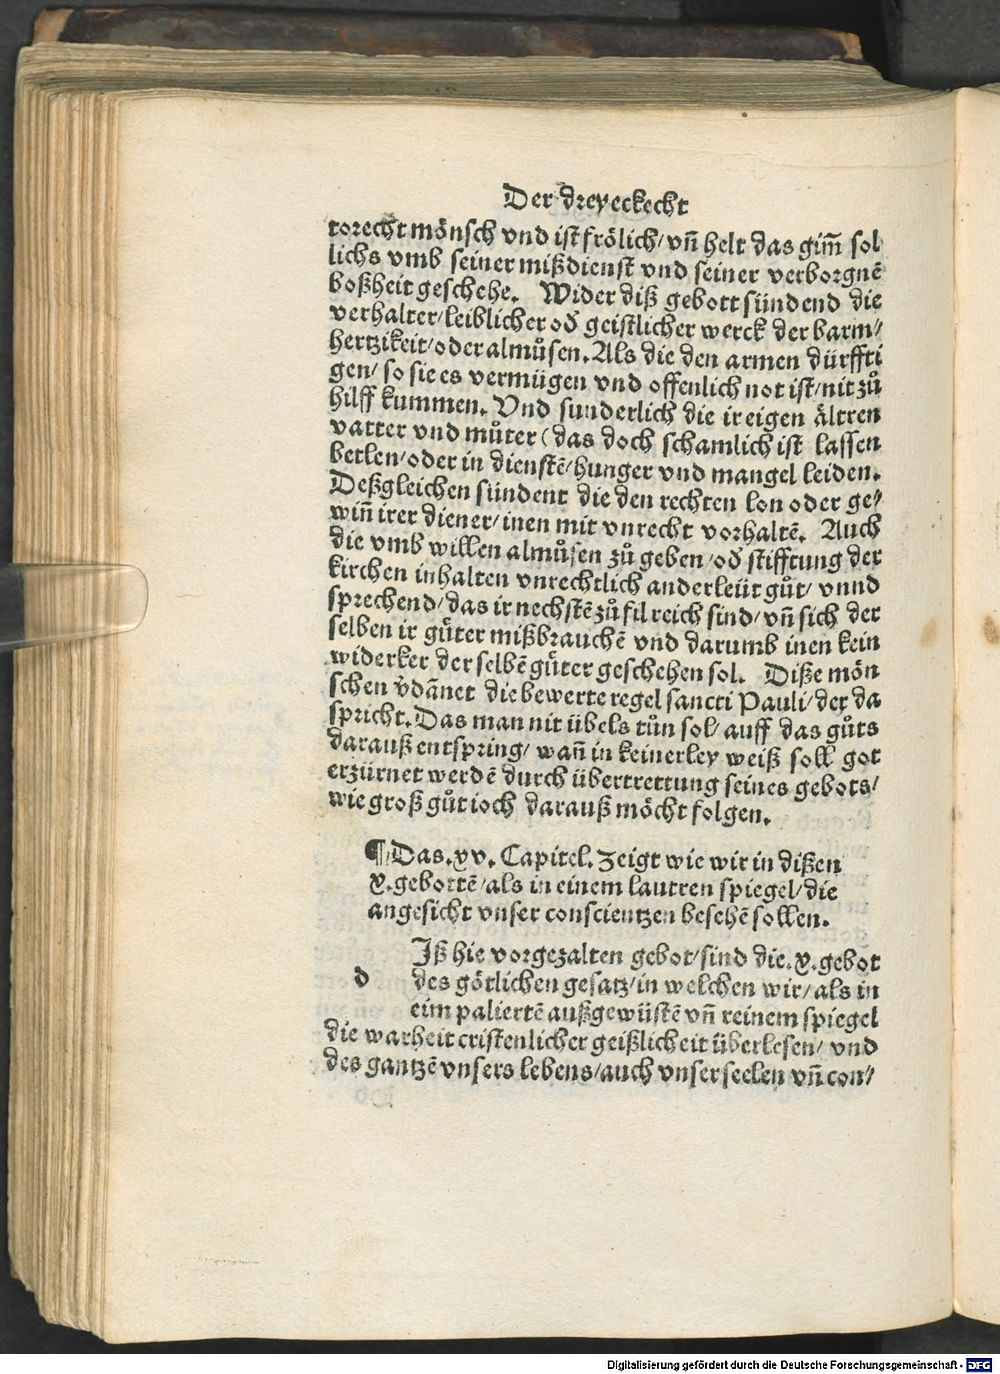 Der dreyeckecht
torecht mönsch vnd ist frölich/ vn̄ helt das gim̄ sol
lichs vmb seiner mißdienst vnd seiner verborgnē
boßheit geschehe. Wider diß gebott sündend die
verhalter/ leiblicher od̄ geistlicher werck der barm/
hertzikeit/ oder almůsen. Als die den armen dürffti
gen/ so sie es vermügen vnd offenlich not ist/ nit zů
hilff kummen. Vnd sunderlich die ir eigen ältren
vatter vnd můter (das doch schamlich ist lassen
betlen/ oder in dienstē/ hunger vnd mangel leiden.
Deßgleichen sündent die den rechten lon oder ge/
win̄ irer diener/ inen mit vnrecht vorhaltē. Auch
die vmb willen almůsen zů geben/ od̄ stifftung der
kirchen inhalten vnrechtlich anderleüt gůt/ vnnd
sprechend/ das ir nechstē zů fil reich sind/ vn̄ sich der
selben ir gůter mißbrauchē vnd darumb inen kein
widerker der selbē gůter geschehen sol. Diße mön
schen v̄dānet die bewerte regel sancti Pauli/ der da
spricht. Das man nit übels tůn sol/ auff das gůts
darauß entspring/ wan̄ in keinerley weiß soll got
erzürnet werdē durch übertrettung seines gebots/
wie groß gůt ioch darauß möcht folgen.
¶ Das. xv. Capitel. Zeigt wie wir in dißen
x. gebottē/ als in einem lautren spiegel/ die
angesicht vnser conscientzen besehē sollen.
d Iß hie vorgezalten gebot/ sind die. x. gebot
des götlichen gesatz/ in welchen wir/ als in
eim paliertē außgewüstē vn̄ reinem spiegel
die warheit cristenlicher geißlicheit überlesen/ vnd
des gantzē vnsers lebens/ auch vnser seelen vn̄ con/
Digitalisierung gefördert durch die Deutsche Forschungsgemeinschaft - DFG